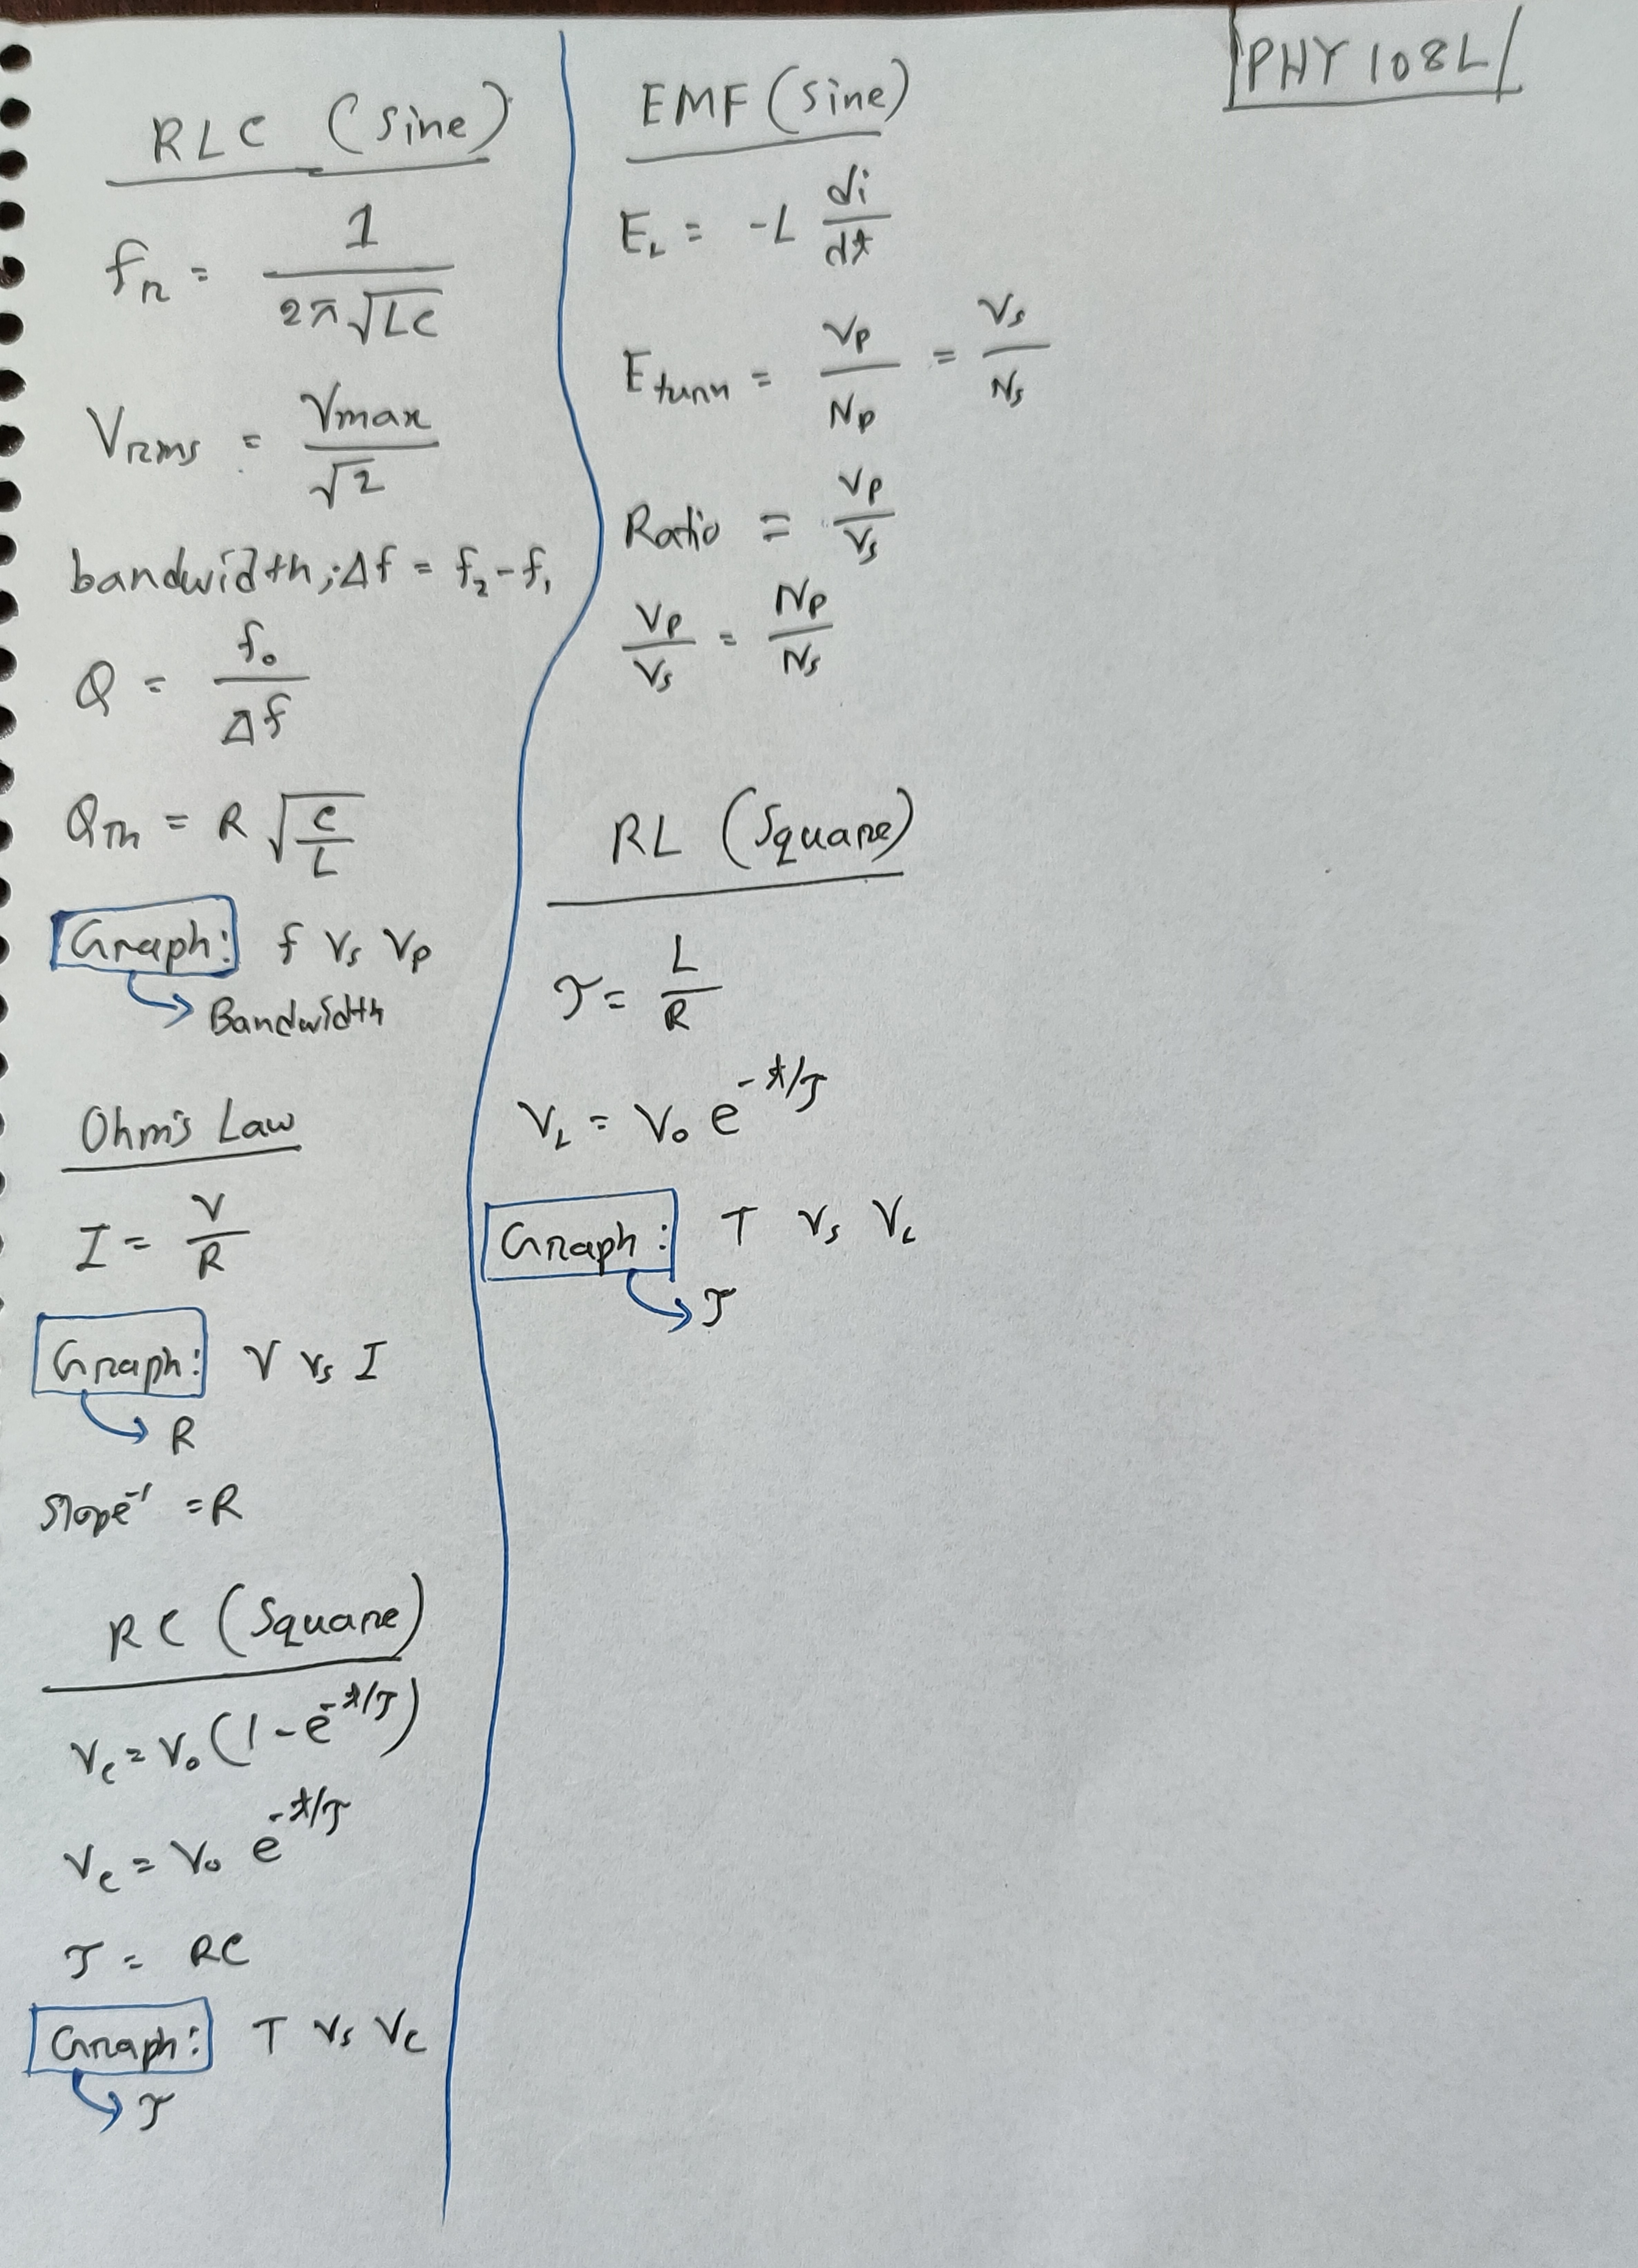 PHY 108L
RLC (Sine)
fr = 1 / 2π√LC
Vrms = Vmax / √2
bandwidth; Δf = f₂ - f₁
Q = f₀ / Δf
QTh = R √(C/L)
Graph: f vs Vp
→ Bandwidth
Ohm's Law
I = V / R
Graph: V vs I
→ R
Slope⁻¹ = R
RC (Square)
Vc = V₀ (1 - e^-t/τ)
Vc = V₀ e^-t/τ
τ = RC
Graph: T vs Vc
→ τ
EMF (Sine)
E_L = -L di/dt
E turn = Vp / Np = Vs / Ns
Ratio = Vp / Vs
Vp / Vs = Np / Ns
RL (Square)
τ = L / R
V_L = V₀ e^-t/τ
Graph: T vs V_L
→ τ